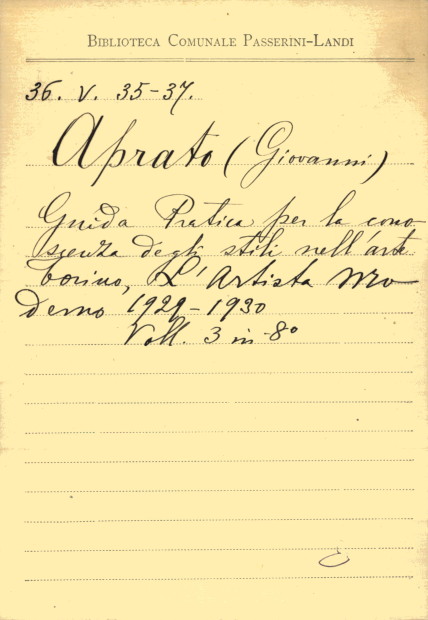 BIBLIOTECA COMUNALE PASSERINI-LANDI
36. V. 35-37.
Aprato (Giovanni)
Guida Pratica per la cono
scenza degli stili nell'arte
Torino, L'Artista Mo-
derno 1929-1930
Voll. 3 in-8°